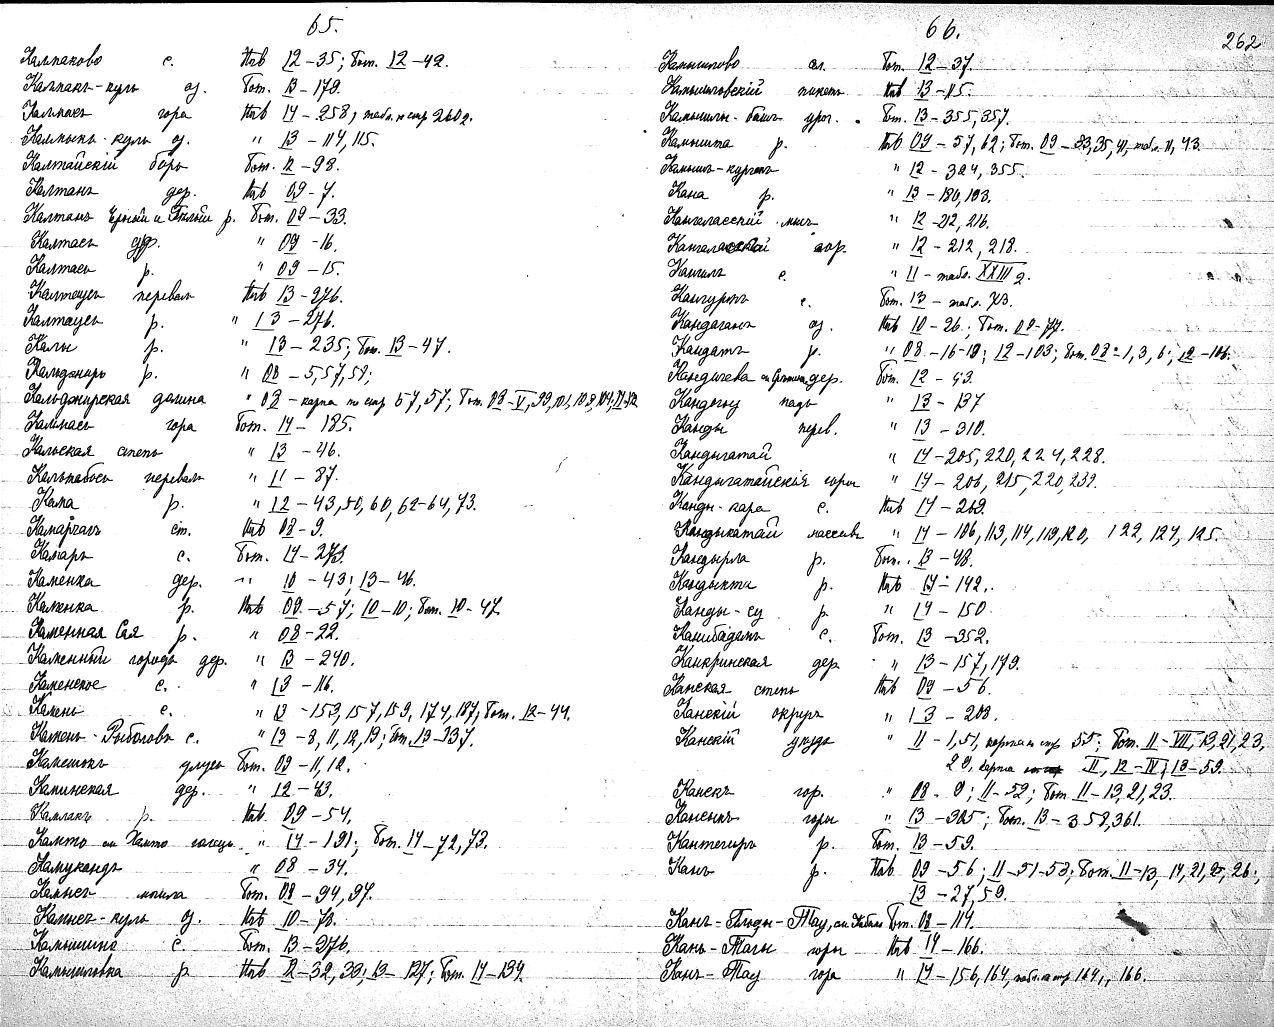 65.
Калпаково с. Пчв 12-35; Бот. 12-42.
Калпакъ-куль оз. Бот. 13-179.
Калпакъ гора Пчв 14-258, табл. к стр 260
Калмыкъ-куль оз. " 13-114, 115.
Калтайскій боръ Бот. 12-98.
Калтанъ дер. Пчв 09-7.
Калтанъ Черный и Бѣлый р. Бот. 09-33.
Калтасъ " 09-16.
Калтасъ р. " 09-15.
перевалъ Пчв 13-276.
р. " 13-276.
Калы р. " 13-235; Бот. 13-47.
Кальджиръ р. " 08-5, 57, 59;
Кальджирская долина " 08-карта къ стр 57, 57; Бот. 08-V, 99,
гора Бот. 14-185.
Кальская степь " 13-46.
перевалъ " 11-87.
Кама р. " 12-43, 50, 60, 62-64, 73.
ст. Пчв 08-9.
Камаръ с. Бот. 14-273.
Каменка дер. " 10-43; 13-46.
Каменка р. Пчв 09-57; 10-10; Бот. 10-47.
Каменная р. " 08-22.
Каменный городъ дер. " 13-240.
Каменское с. " 13-116.
Камень с. " 13-153, 157, 159, 174, 187; Бот. 12-44.
Камень-Рыболовъ с. " 13-8, 11, 12, 13; Бот. 13-337.
Камешокъ улусъ Бот. 09-11, 12.
дер. " 12-43.
р. Пчв 09-54.
Камто " 14-191; Бот. 14-72, 73.
Камукандъ " 08-34.
могила Бот. 08-94, 97.
оз. Пчв 10-78.
Камышино с. Бот. 13-276.
Камышловка р. Пчв 12-32, 33; 13-127; Бот. 14-134.
66.
262
Камышлово ст. Бот. 12-37.
Камышловскій пикетъ Пчв 13-115.
Камышлы-башъ ург. Бот. 13-355, 357.
Камышта р. Пчв 09-57, 62; Бот. 09-33, 35, 41, табл. II, 43.
Камышъ-курганъ " 12-324, 355.
Кана р. " 13-180, 193.
Кангаласскій мысъ " 12-212, 216.
" 12-212, 218.
с. " 11-табл. XXIII
с. Бот. 13-табл.
оз. Пчв 10-26; Бот. 09-77.
Кандатъ р. " 08-16-19; 12-103; Бот. 08-1, 3, 6; 12-106.
дер. Бот. 12-93.
падь " 13-137
Канды перев. " 13-310.
Кандыгатай " 14-205, 220, 224, 228.
Кандыгатайскія горы " 14-206, 215, 220, 232.
Канды-кара с. Пчв 14-269.
Кандыкатай массивъ " 14-106, 113, 114, 119, 120, 122, 124, 125.
Кандырла р. Бот. 13-48.
Кандыкта р. Пчв 14-142.
Канды-су р. " 14-150
Канибадамъ с. Бот. 13-352.
Канкринская дер. " 13-157, 179.
Канская степь Пчв 09-56.
Канскій округъ " 13-208.
Канскій уѣздъ " 11-1, 51, карта к стр 55; Бот. 11-VII, 13, 21, 23,
29, карта II, 12-IV, 13-59.
Канскъ гор. " 08-9; 11-52; Бот. 11-13, 21, 23.
горы " 13-325; Бот. 13-358, 361.
Кантегиръ р. Бот. 13-59.
Канъ р. Пчв 09-56; 11-51-53; Бот. 11-13, 14, 21, 25, 26;
13-27, 59.
Бот. 08-114.
Канъ-Тагы горы Пчв 14-166.
Канъ-Тау гора " 14-156, 164, табл. к стр 164, 166.